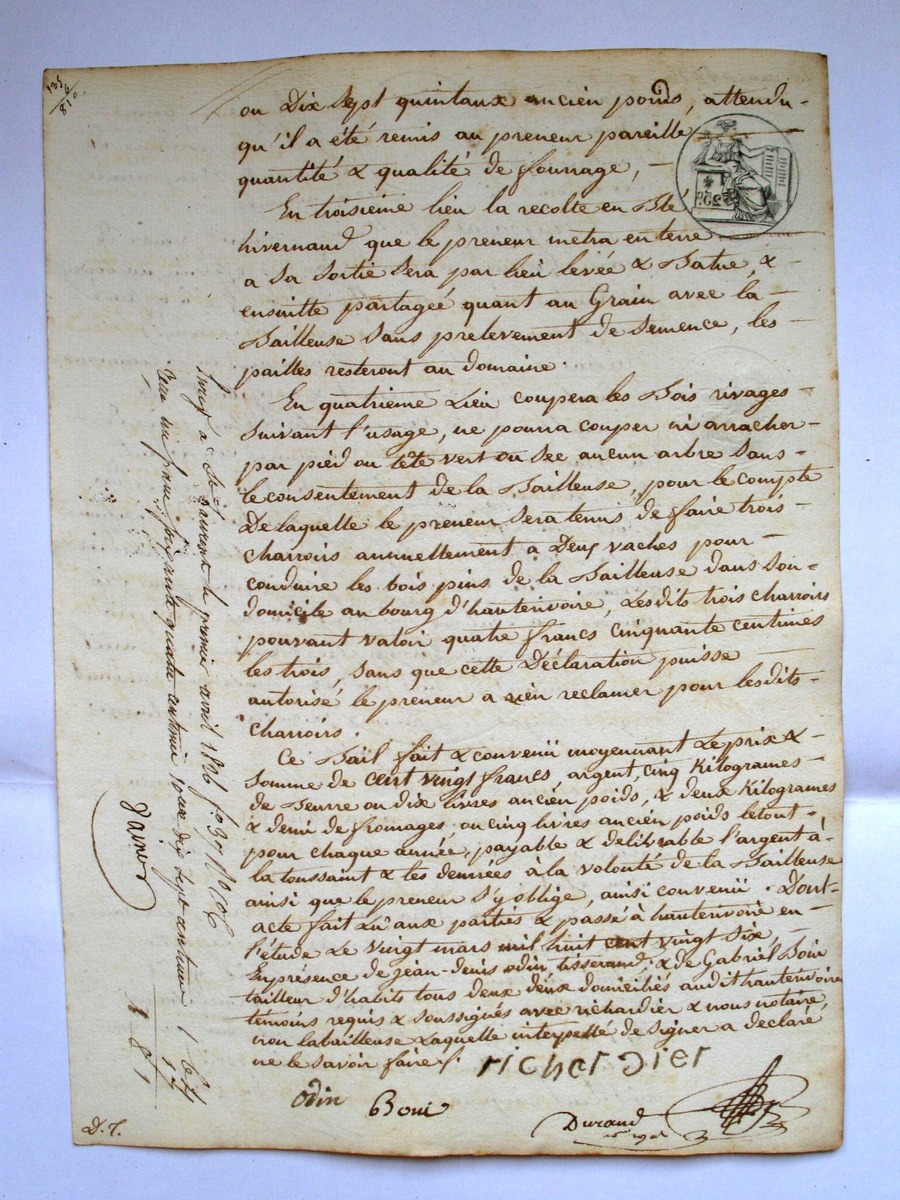 ou Dix sept quintaux ancien poids, attendu
qu'il a été remis au preneur pareille
quantité & qualité de fourrage, —
En troisieme lieu la recolte en Blé
hivernaud que le preneur metra en terre
a sa sortie sera par lieu levée & Batue, &
ensuitte partageé quant au Grain avec la
Bailleuse sans prelevement de semence, les
pailles resteront au domaine.
En quatrieme Lieu coupera les Bois rivages
suivant l'usage, ne pourra couper ni arracher
par pied ou tête vert ou sec aucun arbre sans
le consentement de la Bailleuse, pour le compte
De laquelle le preneur sera tenus de faire trois
charrois annuellement a Deux vaches pour
conduire les bois pins de la Bailleuse dans son
domicile au bourg d'hauterivoire, Lesdits trois charrois
pouvant valoir quatre francs cinquante centimes
les trois, sans que cette Déclaration puisse
autorisé le preneur a rien reclamer pour lesdits
charrois.
Ce Bail fait & convenü moyennant Le prix &
Somme de cent vingt francs, argent, cinq Kilogrames
de Beurre ou dix livres ancien poids, & deux Kilogrames
& demi de fromages, ou cinq livres ancien poids le tout
pour chaque année, payable & delivrable l'argent à
la toussaint & les denrées à la volonté de la Bailleuse
ainsi que le preneur s'y oblige, ainsi convenü. Dont
acte fait Lû aux parties & passé à hauterivoire en
l'étude Le vingt mars mil huit cent vingt six
En présence de jean-denis odin tisserand, & de Gabriel Boin
tailleur d'habits tous deux deux domiciliés audit hauterivoire
témoins requis & soussignés avec richardier & nous notaire,
non la bailleuse Laquelle interpellé de signer a declaré
ne le savoir faire
richerdier
odin
Boin
Durand
D. T.
le premier avril 1826